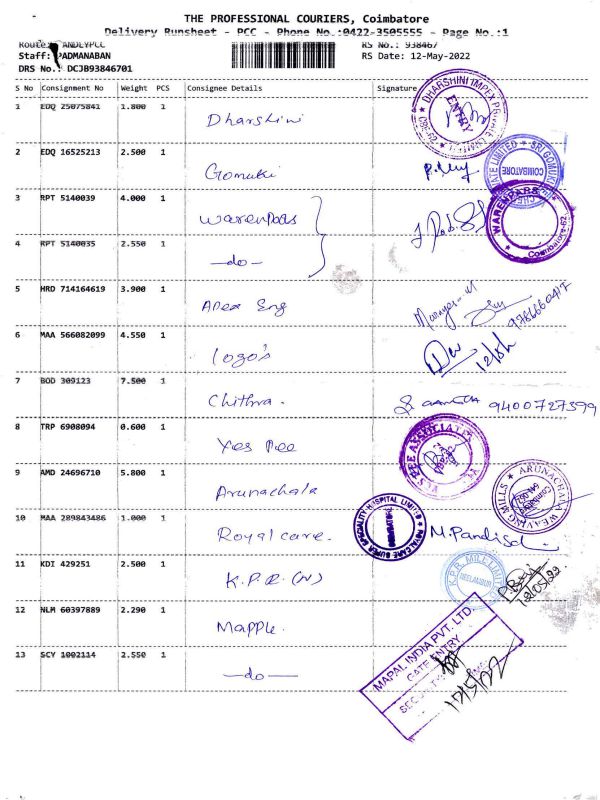 THE PROFESSIONAL COURIERS, Coimbatore
Delivery Runsheet - PCC - Phone No.:0422-3505555 - Page No.:1
Route: ANDLYPCC RS No.: 938467
Staff: PADMANABAN RS Date: 12-May-2022
DRS No.: DCJB93846701
S No Consignment No Weight PCS Consignee Details Signature
1 EDQ 25075841 1.800 1 Dharshini
DHARSHINI IMPEX PRIVATE ENTRY
2 EDQ 16525213 2.500 1 Gomuki
LIMITED SRI GOMUKI COIMBATORE
3 RPT 5140039 4.000 1 Warenpars
WARENPARS Coimbatore-62.
4 RPT 5140035 2.550 1 —do—
5 HRD 714164619 3.900 1 Apex Eng
6 MAA 566082099 4.550 1 logo's
7 BOD 309123 7.500 1 Chithra. 9400727399
8 TRP 6908094 0.600 1 Yes Pee
YES PEE ASSOCIATES
9 AMD 24696710 5.800 1 Arunachala
ARUNACHALA WEAVING MILLS
10 MAA 289843486 1.000 1 Royal care.
ROYAL CARE SUPER SPECIALITY HOSPITAL LIMITED COIMBATORE
11 KDI 429251 2.500 1 K.P.R. (N)
K.P.R. MILL LIMITED NEELAMBUR
12/05/22
12 NLM 60397889 2.290 1 Mapple.
MAPAL INDIA PVT. LTD.
GATE ENTRY
13 SCY 1002114 2.550 1 —do—
12/5/22